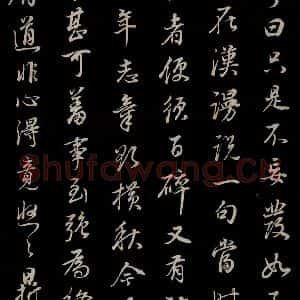 曰只是不妄發如
在漢謾說一句當時
者便須百碎又有
年志氣欲橫秋今
甚可羞事到強為
道非心得竟悠悠鼎
Shufawang.CN